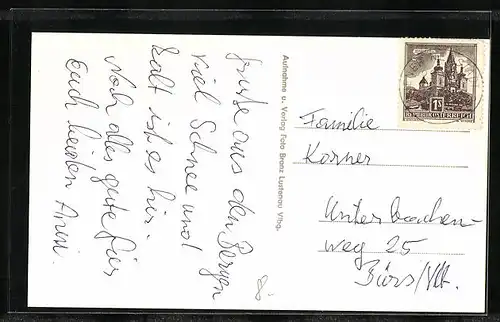 Grüsse aus den Bergen
viel Schnee und
kalt ist es hier.
Noch alles gute für
Euch beiden
Aufnahme u. Verlag Foto Branz Lustenau Vlbg.
1S
REPUBLIK ÖSTERREICH
Familie
Korner
Unterbachen-
weg 25
Bürs/Vlbg.